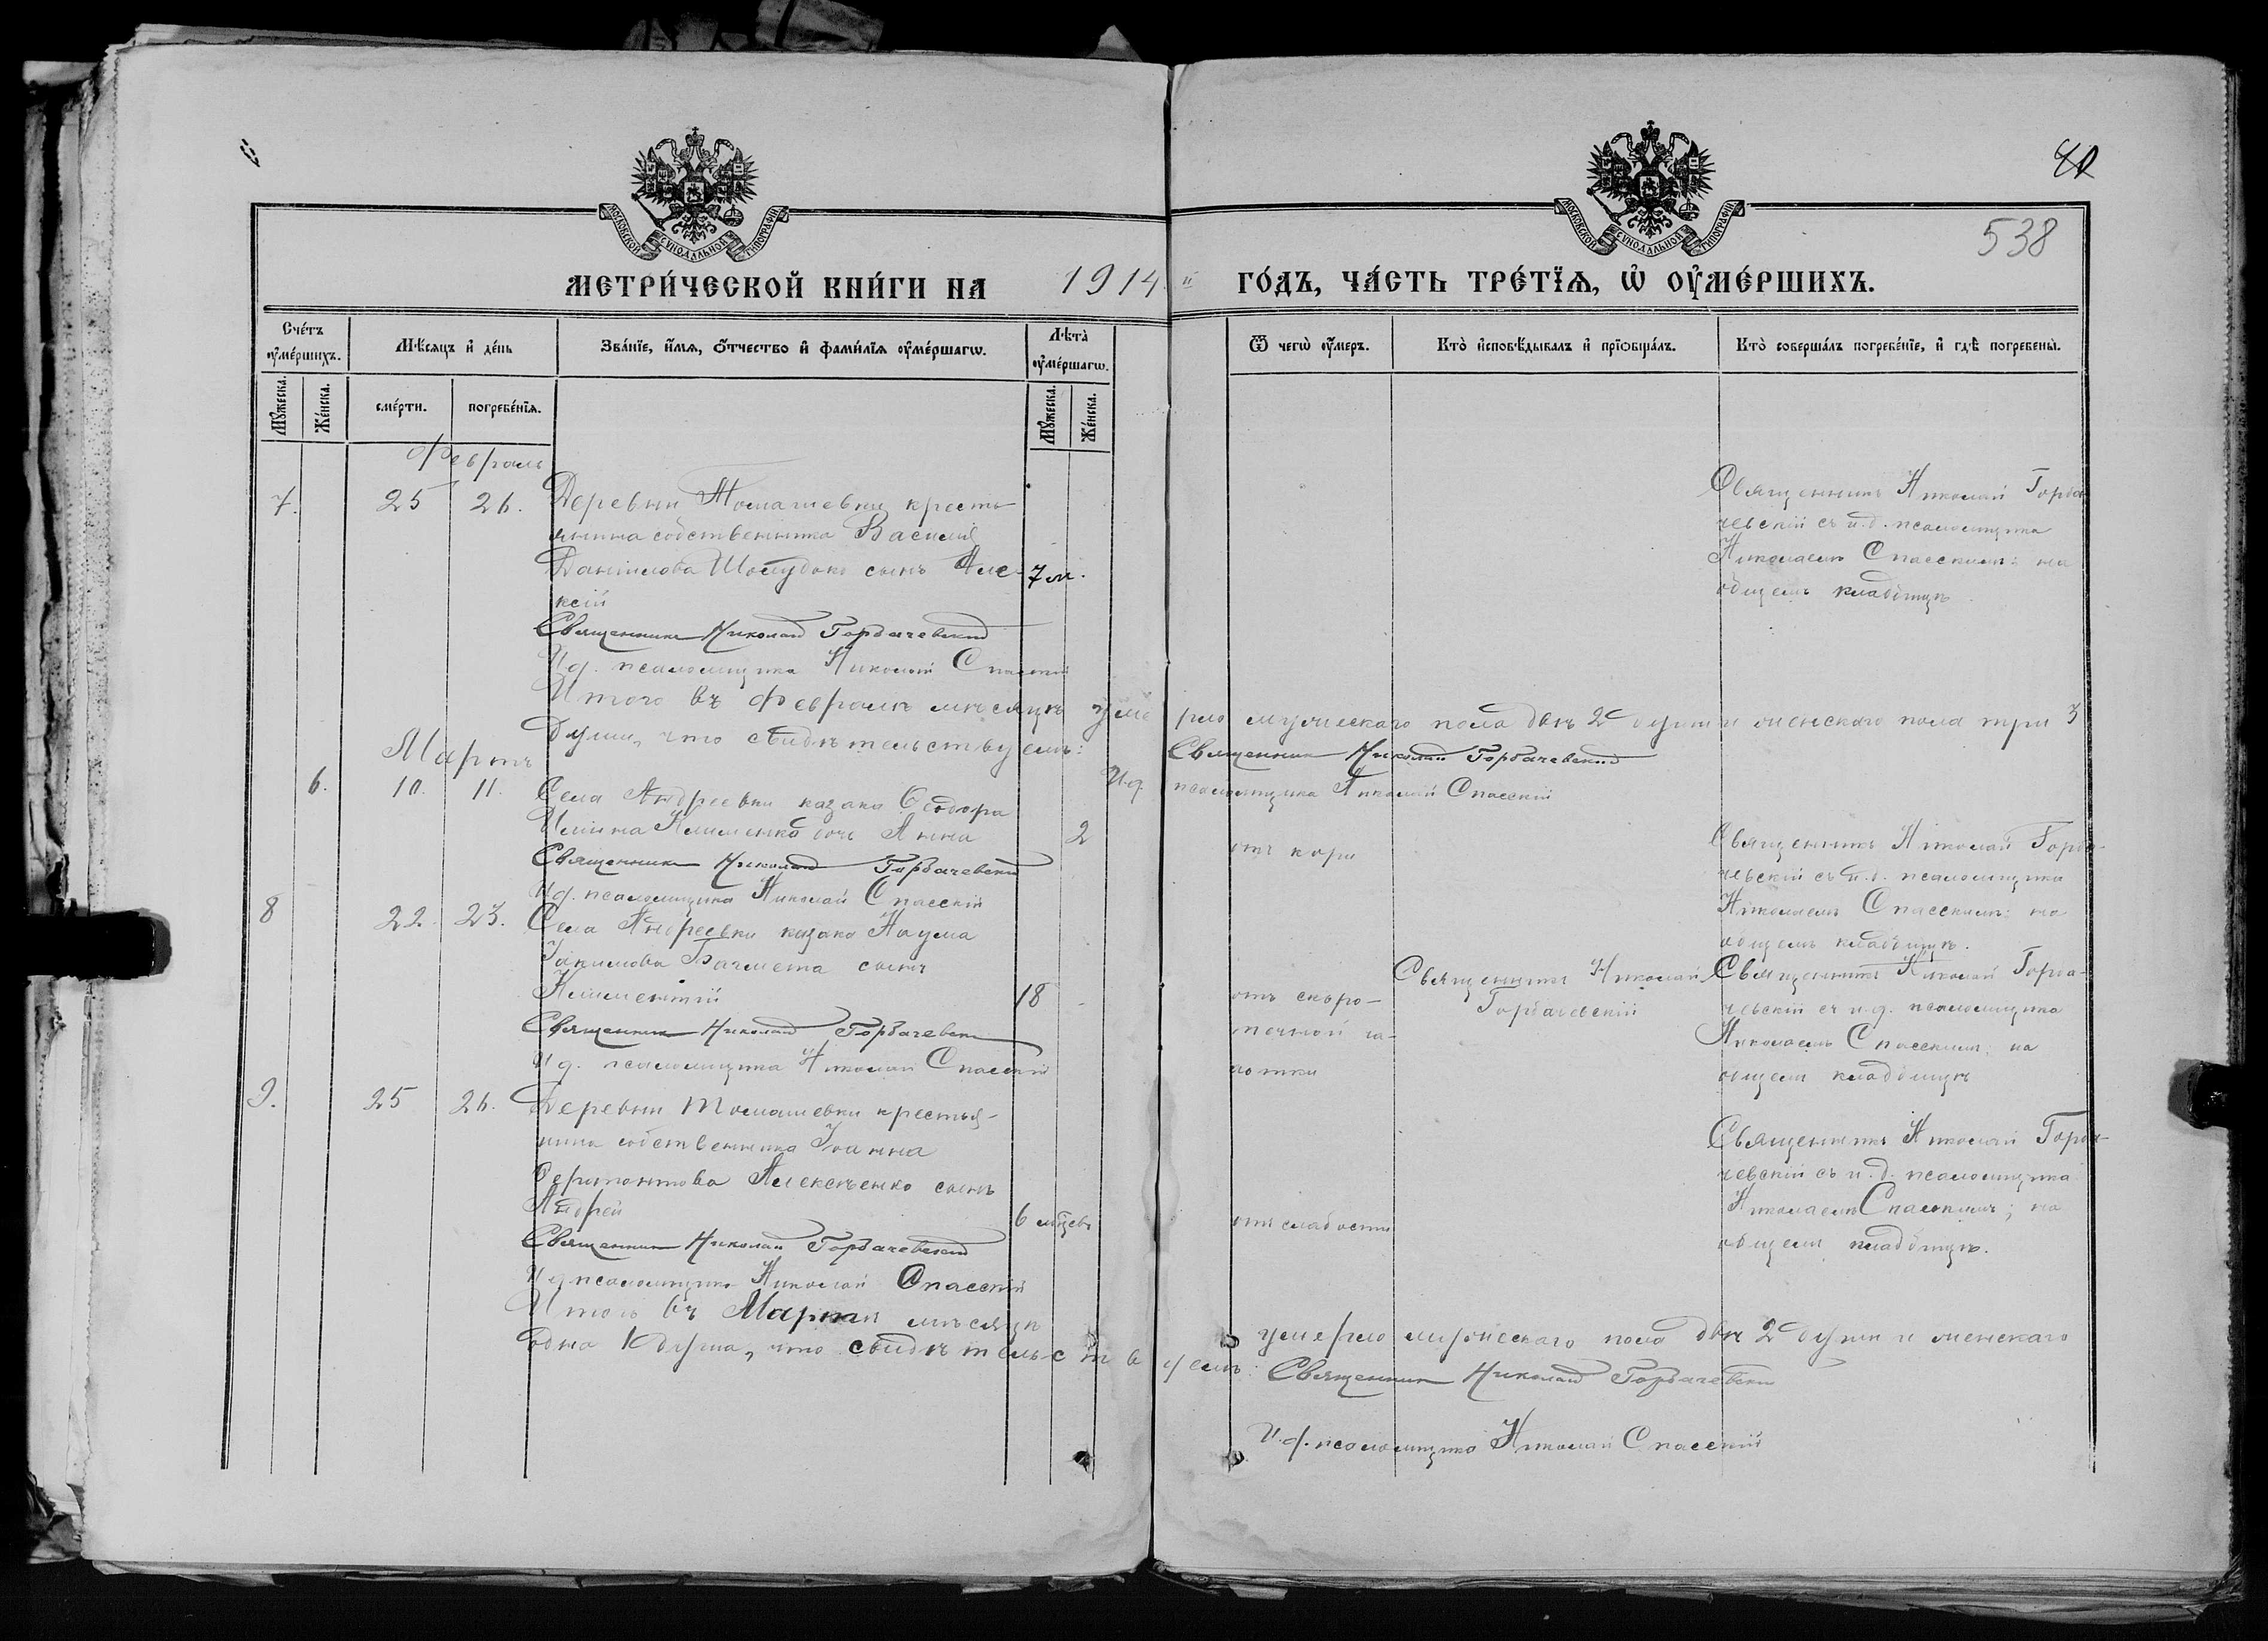 40
538
МОСКОВСКОЙ СѴНОДАЛЬНОЙ ТИПОГРАФІИ
МОСКОВСКОЙ СѴНОДАЛЬНОЙ ТИПОГРАФІИ
МЕТРИ́ЧЕСКОЙ КНИ́ГИ НА 1914 й ГО́ДЪ, ЧА́СТЬ ТРЕ́ТЇѦ, Ѡ҆ ОУ҆МЕ́РШИХЪ.
Сче́тъ оу҆ме́ршихъ.
Мѣ́сяцъ и҆ де́нь
Зва́нїе, и҆́мѧ, ѻ҆́тчество и҆ фами́лїѧ оу҆ме́ршагѡ.
Лѣта̀ оу҆ме́ршагѡ.
Ѿ чегѡ̀ оу҆́меръ.
Кто̀ и҆сповѣ́дывалъ и҆ прїѡбща́лъ.
Кто̀ соверша́лъ погребе́нїе, и҆ гдѣ̀ погребены̀.
Мꙋ́жеска.
Же́нска.
сме́рти.
погребе́нїѧ.
Мꙋ́жеска.
Же́нска.
Февраль
7. 25 26. Деревни Томашевки кресть-
янина собственника Василія
Даніилова сынъ Але- 7 м.
ксій
Священникъ Николай Горбачевскій
И.д. псаломщика Николай Спасскій
Священникъ Николай Горба-
чевскій съ и.д. псаломщика
Николаемъ Спасскимъ; на
общемъ кладбищѣ.
Итого въ Февралѣ мѣсяцѣ умерло мужескаго пола двѣ 2 души и женскаго пола три 3
души, что свидѣтельствуемъ: Священникъ Николай Горбачевскій
И.д. псаломщика Николай Спасскій
Мартъ
6. 10. 11. Села Андреевки казака Ѳеодора
Клименко дочь Анна 2
Священникъ Николай Горбачевскій
И.д. псаломщика Николай Спасскій
отъ кори
Священникъ Николай Горба-
чевскій съ и.д. псаломщика
Николаемъ Спасскимъ; на
общемъ кладбищѣ.
8 22. 23. Села Андреевки казака Наума
Іакимова сынъ
Климентій 18
Священникъ Николай Горбачевскій
И.д. псаломщика Николай Спасскій
отъ скоро-
течной ча-
хотки
Священникъ Николай
Горбачевскій
Священникъ Николай Горба-
чевскій съ и.д. псаломщика
Николаемъ Спасскимъ; на
общемъ кладбищѣ
9. 25 26. Деревни Томашевки крестья-
нина собственника Іоанна
Ѳерапонтова Алексѣенко сынъ
Андрей 6 мѣсцевъ
Священникъ Николай Горбачевскій
И.д. псаломщика Николай Спасскій
отъ слабости
Священникъ Николай Горба-
чевскій съ и.д. псаломщика
Николаемъ Спасскимъ; на
общемъ кладбищѣ.
Итого въ Мартѣ мѣсяцѣ умерло мужескаго пола двѣ 2 души и женскаго
одна 1 душа, что свидѣтельствуемъ: Священникъ Николай Горбачевскій
И.д. псаломщика Николай Спасскій